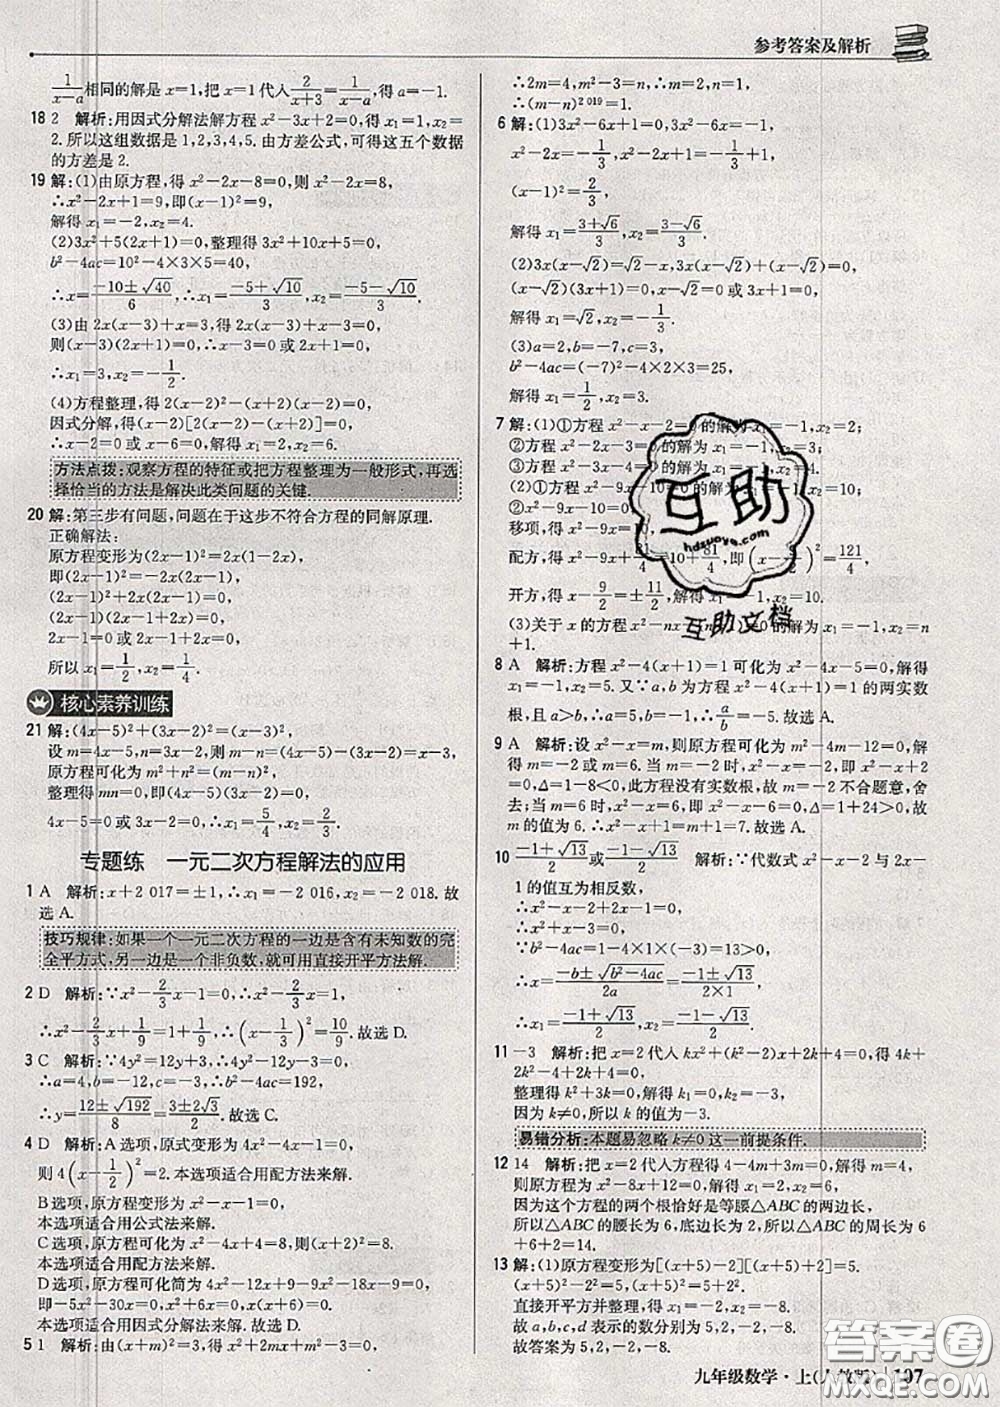 参考答案及解析
1/(x-a)相同的解是x=1,把x=1代入2/(x+3)=1/(x-a),得a=-1.
18 2 解析:用因式分解法解方程x²-3x+2=0,得x₁=1,x₂=
2.所以这组数据是1,2,3,4,5.由方差公式,可得这五个数据
的方差是2.
19 解:(1)由原方程,得x²-2x-8=0,则x²-2x=8,
∴x²-2x+1=9,即(x-1)²=9,
解得x₁=-2,x₂=4.
(2)3x²+5(2x+1)=0,整理得3x²+10x+5=0,
b²-4ac=10²-4×3×5=40,
∴x=(-10±√40)/6,∴x₁=(-5+√10)/3,x₂=(-5-√10)/3.
(3)由2x(x-3)+x=3,得2x(x-3)+x-3=0,
则(x-3)(2x+1)=0,∴x-3=0或2x+1=0,
∴x₁=3,x₂=-1/2.
(4)方程整理,得2(x-2)²-(x+2)(x-2)=0,
因式分解,得(x-2)[2(x-2)-(x+2)]=0,
∴x-2=0或x-6=0,解得x₁=2,x₂=6.
方法点拨:观察方程的特征或把方程整理为一般形式,再选
择恰当的方法是解决此类问题的关键.
20 解:第三步有问题,问题在于这步不符合方程的同解原理.
正确解法:
原方程变形为(2x-1)²=2x(2x-1),
即(2x-1)²-2x(2x-1)=0,
(2x-1)(2x-1-2x)=0,
(2x-1)(2x-1+2x)=0,
2x-1=0或2x-1+2x=0,
所以x₁=1/2,x₂=1/4.
核心素养训练
21 解:(4x-5)²+(3x-2)²=(x-3)²,
设m=4x-5,n=3x-2,则m-n=(4x-5)-(3x-2)=x-3,
原方程可化为m²+n²=(m-n)²,
整理得mn=0,即(4x-5)(3x-2)=0,
4x-5=0或3x-2=0,∴x₁=5/4,x₂=2/3.
专题练 一元二次方程解法的应用
1 A 解析:x+2 017=±1,∴x₁=-2 016,x₂=-2 018.故
选A.
技巧规律:如果一个一元二次方程的一边是含有未知数的完
全平方式,另一边是一个非负数,就可用直接开平方法解.
2 D 解析:∵x²-2/3x-1=0,∴x²-2/3x=1,
∴x²-2/3x+1/9=1+1/9,∴(x-1/3)²=10/9.故选D.
3 C 解析:∵4y²=12y+3,∴4y²-12y-3=0,
∴a=4,b=-12,c=-3,∴b²-4ac=192,
∴y=(12±√192)/8=(3±2√3)/2.故选C.
4 D 解析:A选项,原式变形为4x²-4x+1=2,
则4(x-1/2)²=2.本选项适合用配方法来解.
B选项,原方程变形为x²-x-3=0,
本选项适合用公式法来解.
C选项,原方程可化为x²-4x+4=6,则(x-2)²=6,
本选项适合用配方法来解.
D选项,原方程可化简为4x²-12x+9-9x²-18x-9=0,
即-5x²-30x=0,x²+6x=0,x(x+6)=0,
本选项适合用因式分解法来解.故选D.
5 1 解析:由(x+m)²=3,得x²+2mx+m²-3=0,
∴2m=4,m²-3=n,∴m=2,n=1,
∴(m-n)²⁰¹⁹=1.
6 解:(1)3x²-6x+1=0,
x²-2x=-1/3,x²-2x+1=-1/3+1,
(x-1)²=2/3,
解得x₁=(3+√6)/3,x₂=(3-√6)/3.
(2)3x(x-√2)=√2-x,
3x(x-√2)-(√2-x)=0,
(x-√2)(3x+1)=0,x-√2=0或3x+1=0,
解得x₁=√2,x₂=-1/3.
(3)a=2,b=-7,c=3,
b²-4ac=(-7)²-4×2×3=25,
解得x₁=1/2,x₂=3.
7 解:(1)①方程x²-x-2=0的解为x₁=-1,x₂=2;
②方程x²-2x-3=0的解为x₁=-1,x₂=3;
(2)①方程x²-9x-10=0
②x²-9x-10=0,
移项,得x²-9x=10,
配方,得x²-9x+81/4=10+81/4,即(x-9/2)²=121/4,
开方,得x-9/2=±11/2,解得x₁=-1,x₂=10.
(3)关于x的方程x²-nx 的解为x₁=-1,x₂=n
+1.
8 A 解析:方程x²-4(x+1)=1可化为x²-4x-5=0,解得
x₁=-1,x₂=5.又∵a,b为方程x²-4(x+1)=1的两实数
根,且a>b,∴a=5,b=-1,∴a/b=-5.故选A.
9 A 解析:设x²-x=m,则原方程可化为m²-4m-12=0,解
得m=-2或m=6;当m=-2时,x²-x=-2,即x²-x+2
=0,Δ=1-8<0,此方程没有实数根,故m=-2不合题意,舍
去;当m=6时,x²-x=6,即x²-x-6=0,Δ=1+24>0,故
m的值为6.∴x²-x+1=m+1=7.故选A.
10 (-1+√13)/2或(-1-√13)/2 解析:∵代数式x²-x-2与2x-
1的值互为相反数,
∴x²-x-2+2x-1=0,
∴x²+x-3=0,
∴x=(-b±√(b²-4ac))/2a=(-1±√13)/(2×1),
∴x₁=(-1+√13)/2,x₂=(-1-√13)/2.
11 -3 解析:把x=2代入kx²+(k²-2)x+2k+4=0,得4k+
2k²-4+2k+4=0,
整理得k²+3k=0,解得k₁=0,k₂=-3,
因为k≠0,所以k的值为-3.
易错分析:本题易忽略k≠0这一前提条件.
12 14 解析:把x=2代入方程得4-4m+3m=0,解得m=4,
则原方程为x²-8x+12=0,解得x₁=2,x₂=6,
因为这个方程的两个根恰好是等腰△ABC的两边长,
所以△ABC的腰长为6,底边长为2,所以△ABC的周长为6
+6+2=14.
13 解:(1)原方程变形为[(x+5)-2][(x+5)+2]=5,
(x+5)²-2²=5,(x+5)²=5+2².
直接开平方并整理,得x₁=-2,x₂=-8.
故a,b,c,d表示的数分别为5,2,-2,-8.
故答案为5,2,-2,-8.
互助
hdzuoye.com
互助文档
答案圈
MXQE.COM
九年级数学·上(人教版) 107